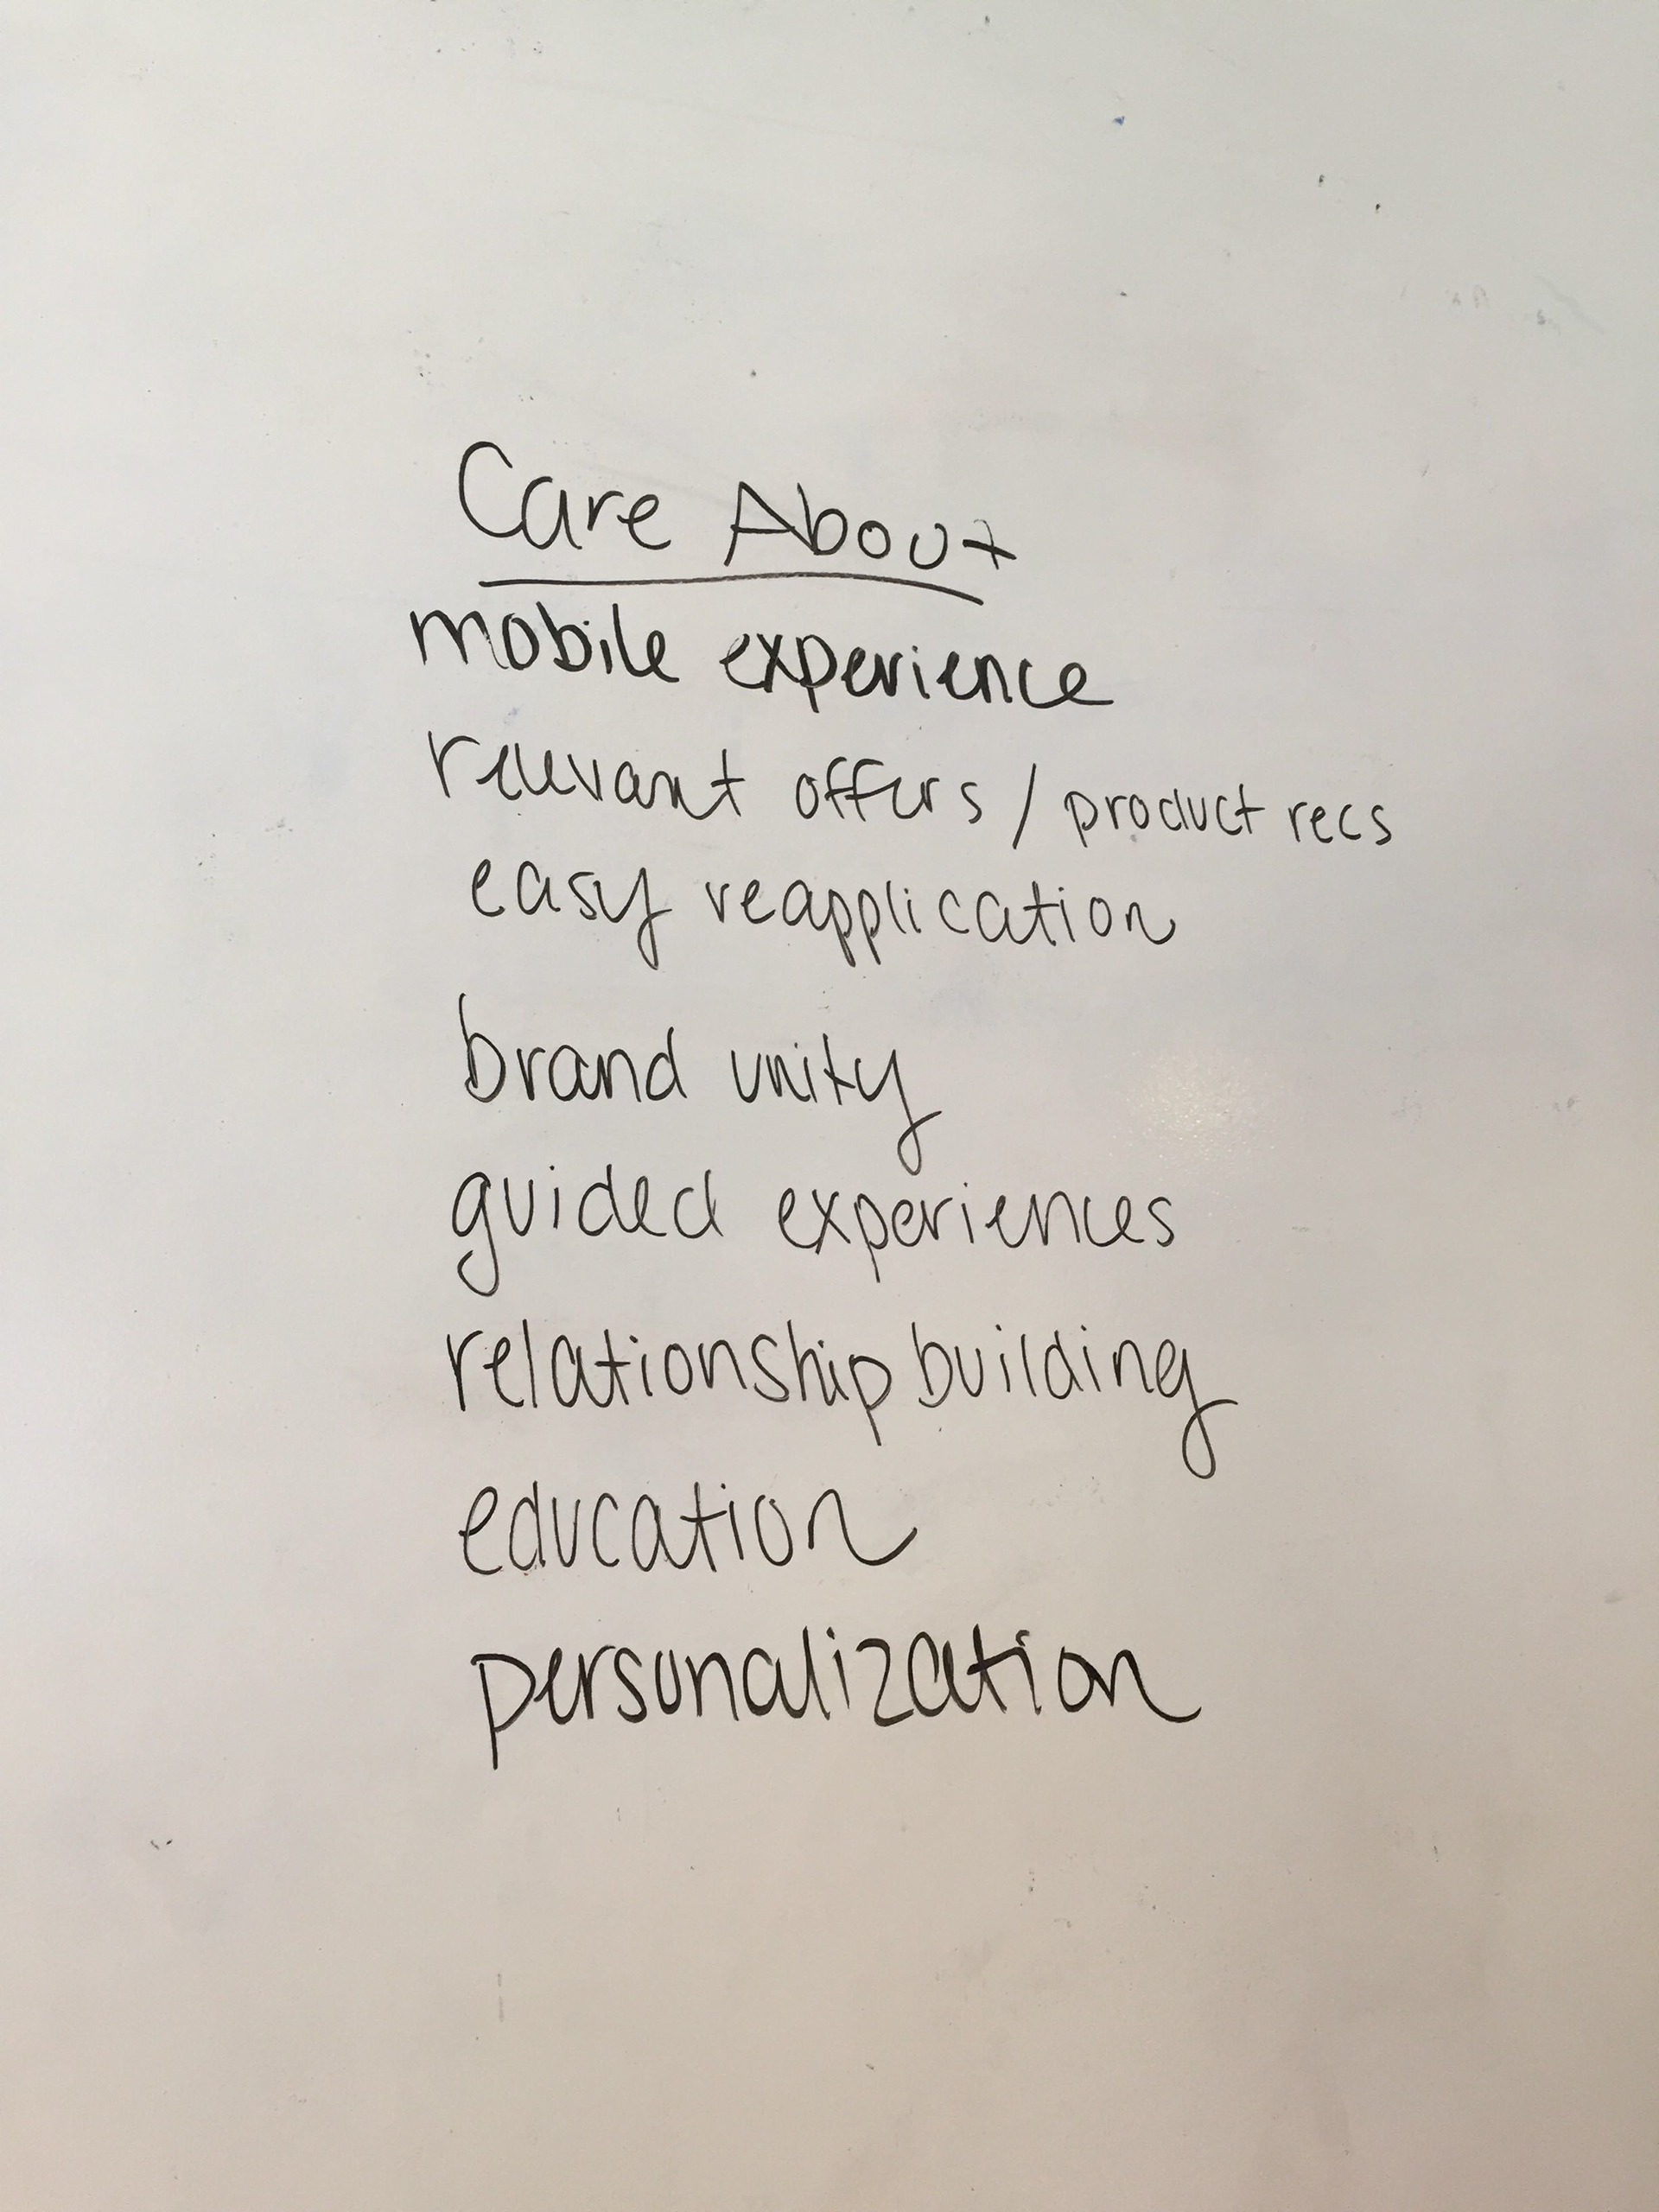 Care About
mobile experience
relevant offers / product recs
easy reapplication
brand unity
guided experiences
relationship building
education
personalization